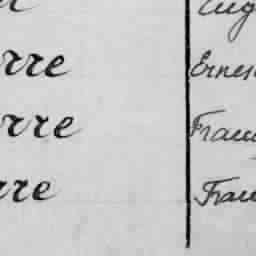 Eug
rre Ernes
rre Fran
rre Fran